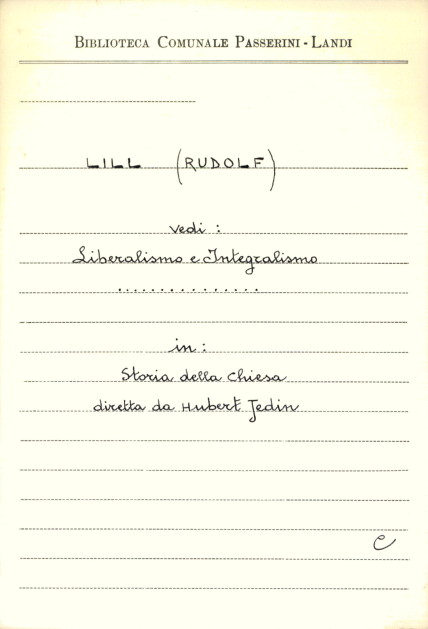 BIBLIOTECA COMUNALE PASSERINI - LANDI
LILL (RUDOLF)
vedi :
Liberalismo e Integralismo
...............
in :
Storia della Chiesa
diretta da Hubert Jedin
C